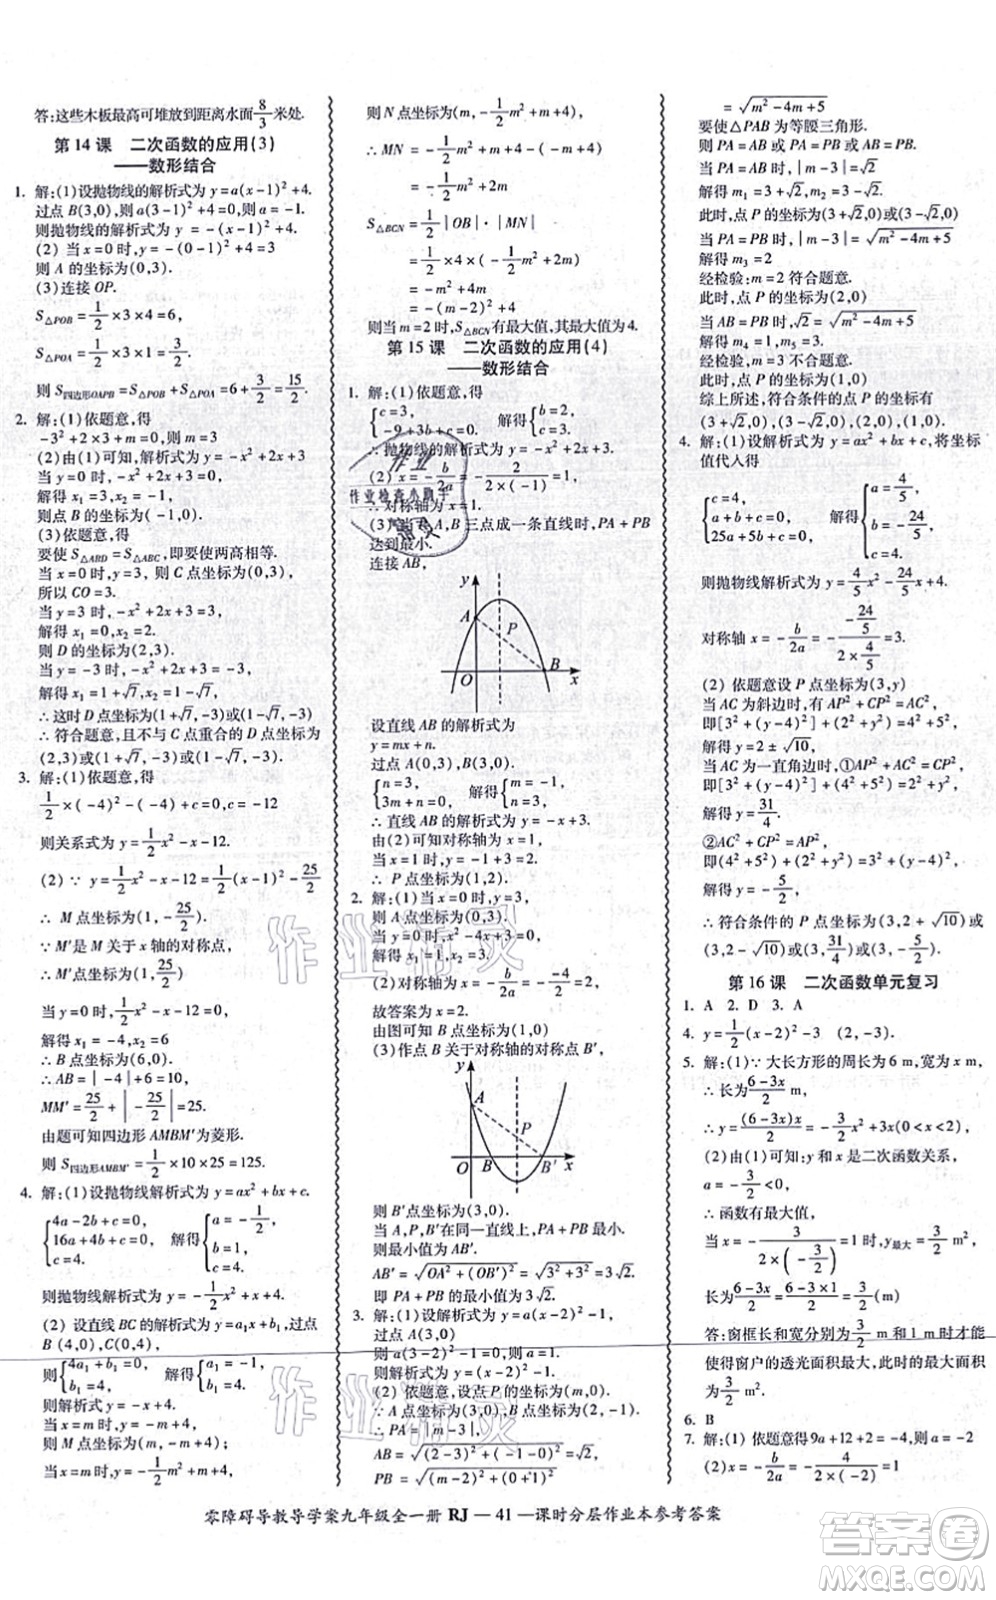 答:这些木板最高可堆放到距离水面8/3米处.
第 14 课　二次函数的应用(3)
——数形结合
1. 解:(1)设抛物线的解析式为 y=a(x-1)²+4.
过点 B(3,0),则 a(3-1)²+4=0,则 a=-1.
则抛物线的解析式为 y=-(x-1)²+4.
(2) 当 x=0 时,y=-(0-1)²+4=3
则 A 的坐标为(0,3).
(3)连接 OP.
S△POB=1/2×3×4=6,
S△POA=1/2×3×1=3/2,
则 S四边形OAPB=S△POB+S△POA=6+3/2=15/2
2. 解:(1)依题意,得
-3²+2×3+m=0,则 m=3
(2)由(1)可知,解析式为 y=-x²+2x+3
当 y=0 时,-x²+2x+3=0
解得 x₁=3,x₂=-1,
则点 B 的坐标为(-1,0).
(3)依题意,得
要使 S△ABD=S△ABC,即要使两高相等.
当 x=0 时,y=3,则 C 点坐标为(0,3),
所以 CO=3.
当 y=3 时,-x²+2x+3=3,
解得 x₁=0,x₂=2.
则 D 点坐标为(2,3).
当 y=-3 时,-x²+2x+3=-3,
解得 x₁=1+√7,x₂=1-√7,
∴这时 D 点坐标为(1+√7,-3)或(1-√7,-3)
∴符合题意,且不与 C 点重合的 D 点坐标为
(2,3)或(1+√7,-3)或(1-√7,-3)
3. 解:(1)依题意,得
1/2×(-4)²-(-4)+c=0,则 c=-12
则关系式为 y=1/2x²-x-12.
(2) ∵ y=1/2x²-x-12=1/2(x-1)²-25/2
∴ M 点坐标为(1,-25/2).
∵M′是 M 关于 x 轴的对称点,
∴M′点坐标为(1,25/2)
当 y=0 时,1/2x²-x-12=0,
解得 x₁=-4,x₂=6
∴B 点坐标为(6,0).
∴AB=|-4|+6=10.
MM′=25/2+|-25/2|=25.
由题可知四边形 AMBM′为菱形.
则 S四边形AMBM′=1/2×10×25=125.
4. 解:(1)设抛物线解析式为 y=ax²+bx+c.
{4a-2b+c=0, 16a+4b+c=0, c=4. 解得{a=-1/2, b=1, c=4.
则抛物线解析式为 y=-1/2x²+x+4
(2) 设直线 BC 的解析式为 y=a₁x+b₁,过点
B (4,0),C(0,4)
则{4a₁+b₁=0, b₁=4 解得{a₁=-1, b₁=4.
则解析式为 y=-x+4
当 x=m 时,y=-m+4
则 M 点坐标为(m,-m+4);
当 x=m 时,y=-1/2m²+m+4
则 N 点坐标为(m,-1/2m²+m+4)
∴MN=-1/2m²+m+4-(-m+4)
=-1/2m²+2m
S△BCN=1/2|OB|·|MN|
=1/2×4×(-1/2m²+2m)
=-m²+4m
=-(m-2)²+4
则当 m=2 时,S△BCN有最大值,其最大值为 4.
第 15 课　二次函数的应用(4)
——数形结合
1. 解:(1)依题意,得
{c=3, -9+3b+c=0. 解得{b=2, c=3.
∴抛物线的解析式为 y=-x²+2x+3
(2)x=-b/2a=-2/(2×(-1))=1
∴对称轴为 x=1.
A,B 三点成一条直线时,PA+PB
达到最小.
连接 AB,
y
A
P
O
B
x
设直线 AB 的解析式为
y=mx+n.
过点 A(0,3),B(3,0).
{n=3, 3m+n=0 解得{m=-1, n=3.
∴直线 AB 的解析式为 y=-x+3
由(2)可知对称轴为 x=1
当 x=1 时,y=-1+3=2.
∴ P 点坐标为(1,2).
2. 解:(1)当 x=0 时,y=3,
则 A 点坐标为(0,3).
当 y=0 时,x²-4x+3=0
解得 x₁=1,x₂=3
(2)对称轴为 x=-b/2a=-(-4)/(2×1)=2,
故答案为 x=2
由图可知 B 点坐标为(1,0)
(3)作点 B 关于对称轴的对称点 B′,
y
A
P
O
B
B′
x
则 B′点坐标为(3,0).
当 A,P,B′在同一直线上时,PA+PB 最小,
则最小值为 AB′.
AB′=√(OA²+(OB′)²)=√(3²+3²)=3√2.
即 PA+PB 的最小值为 3√2.
3. 解:(1)设解析式为 y=a(x-2)²-1,
过点 A(3,0)
则 a(3-2)²-1=0,则 a=1.
则解析式为 y=(x-2)²-1
(2) 依题意,设点 P 的坐标为(m,0)
∴PA=|m-3|
AB=√((2-3)²+(-1)²)=√2
PB=√((m-2)²+(0+1)²)
=√(m²-4m+5)
要使△PAB 为等腰三角形.
则 PA=AB 或 PA=PB
当 PA=AB 时,|m-3|=√2
解得 m₁=3+√2,m₂=3-√2.
此时,点 P 的坐标为(3+√2,0)或(3-√2,0)
当 PA=PB 时,|m-3|=√(m²-4m+5)
解得 m₃=2
经检验:m=2 符合题意.
此时,点 P 的坐标为(2,0)
当 AB=PB 时,√2=√(m²-4m+5)
解得 m₄=1,m₅=3(舍去).
经检验,m=1 符合题意.
此时,点 P 的坐标为(1,0)
综上所述,符合条件的点 P 的坐标为
(3+√2,0)、(3-√2,0)、(2,0)、(1,0)
4. 解:(1)设解析式为 y=ax²+bx+c,将坐标
值代入得
{c=4, a+b+c=0, 25a+5b+c=0 解得{a=4/5, b=-24/5, c=4.
则抛物线解析式为 y=4/5x²-24/5x+4.
对称轴 x=-b/2a=-(-24/5)/(2×4/5)=3.
(2) 依题意设 P 点坐标为(3,y)
当 AC 为斜边时,有 AP²+CP²=AC²
即[3²+(y-4)²]+(2²+y²)=4²+5²
解得 y=2±√10,
当 AC 为一直角边时,①AP²=AC²+CP²,
即[3²+(y-4)²]=(2²+y²)+(4²+5²)
解得 y=31/4.
②AC²+CP²=AP²,
∴符合条件的 P 点坐标为(3,2+√10)或
(3,2-√10)或(3,31/4)或(3,4/5).
第 16 课　二次函数单元复习
1. A　2. D　3. A
4. y=1/2(x-2)²-3　(2,-3).
5. 解:(1)∵大长方形的周长为 6 m,宽为 x m,
∴长为(6-3x)/2 m
∴y=(6-3x)x/2=-3/2x²+3x(0<x<2)
(2)由(1)可知:y 和 x 是二次函数关系,
a=-3/2<0
∴函数有最大值,
当 x=-3/(2×(-3/2))=1 时,y最大=3/2 m².
长为(6-3x)/2=(6-3×1)/2=3/2(m)
答:窗框长和宽分别为3/2 m 和 1 m 时才能
使得窗户的透光面积最大,此时最大面积
为3/2 m².
6. B
7. 解:(1) 依题意得9a+12+2=5,则 a=-1
(2)-b/2a=-4/(2×(-1))=2
零障碍导教导学案九年级全一册 RJ — 41 —课时分层作业本参考答案
作业检查小助手
作业精灵
作业精灵
答案圈
MXQE.COM